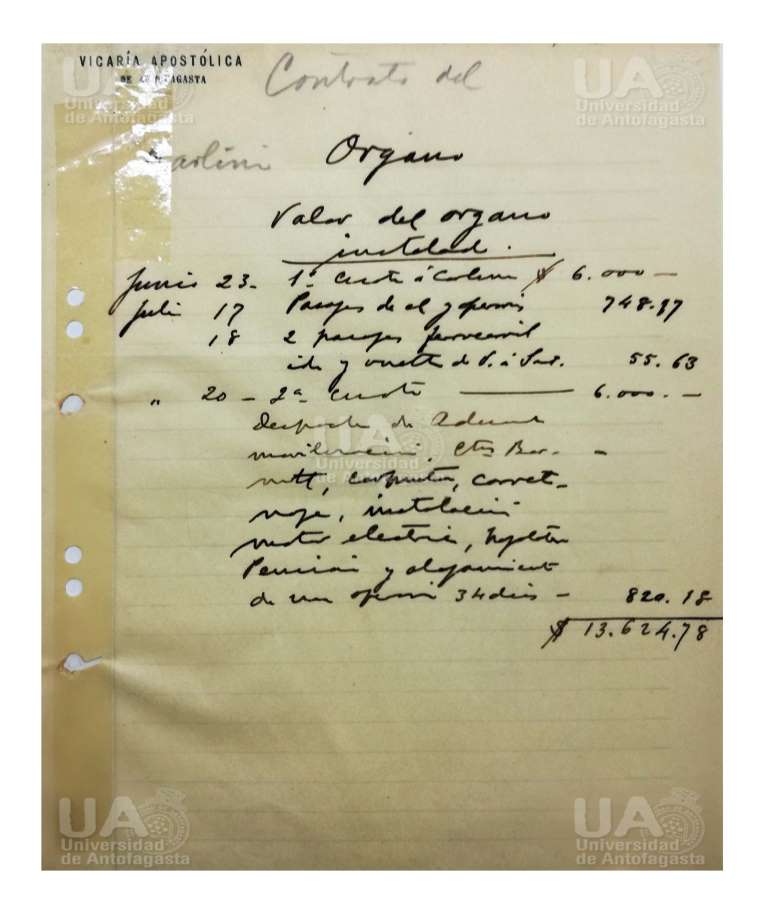 VICARÍA APOSTÓLICA
DE ANTOFAGASTA
Contrato del
Organo
Valor del organo
instalado.
Junio 23. 1ª cuota á $ 6.000 —
Julio 17 Pasajes de el y operario 748.97
18 2 pasajes ferrocarril
ida y vuelta de V. á 55.63
" 20 – 2ª cuota — 6.000. —
Despacho de Aduana
movilización, Ctas
carpintero, carret-
instalación
motor electrico,
Pension y alojamiento
de un operario 34 dias – 820.18
$ 13.624.78
UA
Universidad
de Antofagasta
UA
Universidad
de Antofagasta
UA
Universidad
de Antofagasta
UA
Universidad
de Antofagasta
UA
Universidad
de Antofagasta